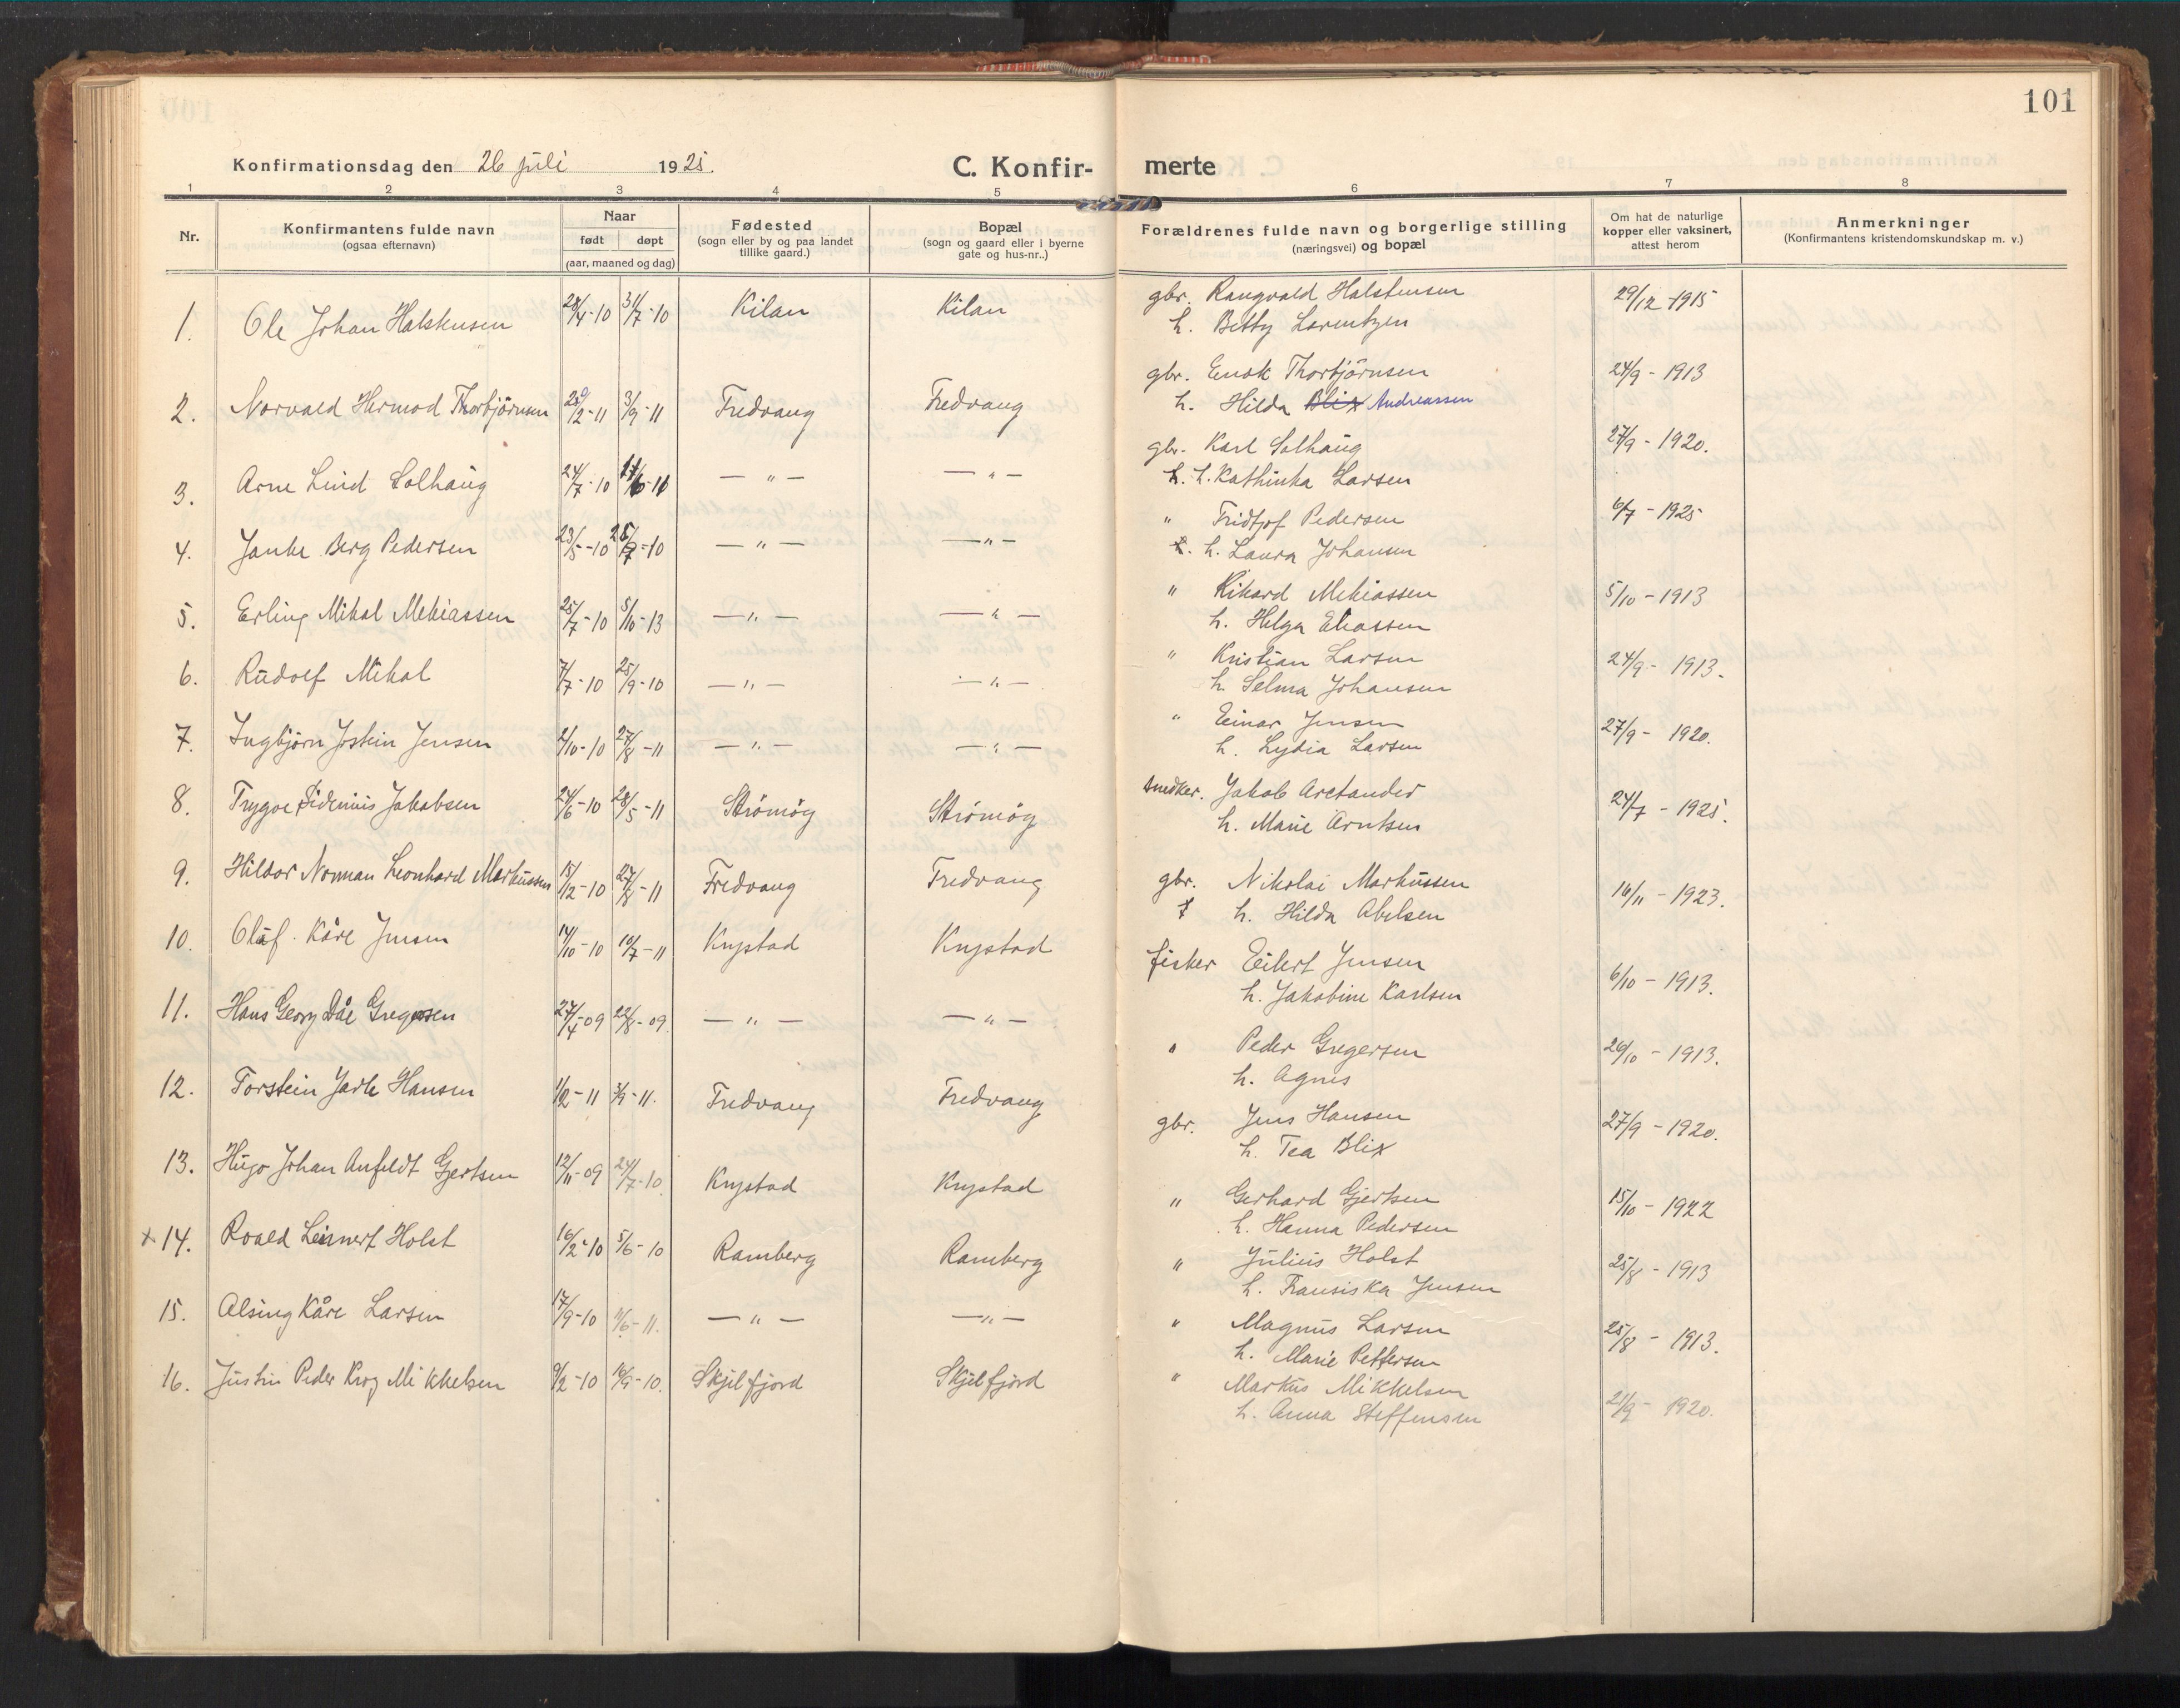 101
Konfirmationsdag den 26 juli 1925. C. Konfir- merte
1 2 3 4 5 6 7 8
Nr.
Konfirmantens fulde navn
(ogsaa efternavn)
Naar
født døpt
(aar, maaned og dag)
Fødested
(sogn eller by og paa landet
tillike gaard.)
Bopæl
(sogn og gaard eller i byerne
gate og hus-nr..)
Forældrenes fulde navn og borgerlige stilling
(næringsvei) og bopæl
Om hat de naturlige
kopper eller vaksinert,
attest herom
Anmerkninger
(Konfirmantens kristendomskundskap m. v.)
1. Ole Johan Halstensen 28/4-10 31/7-10 Kilan Kilan gbr. Rangvald Halstensen 29/12-1915
h. Betty Lorentzen
2. Norvald Hermod Thorbjörnsen 20/2-11 3/9-11 Fredvang Fredvang gbr. Enok Thorbjörnsen 24/9-1913
h. Hilda Blix Andreassen
3. Arne Lind Solhaug 24/7-10 — " — — " — gbr. Karl Solhaug 27/9-1920.
h. h. Kathinka Larsen
4. Janke Berg Pedersen 23/5-10 — " — — " — " Fridtjof Pedersen 6/7-1925
h. Laura Johansen
5. Erling Mikal Mekiassen 25/7-10 5/10-13 — " — — " — " Rikard Mekiassen 5/10-1913
h. Helga Eliassen
6. Rudolf Mikal 7/7-10 25/9-10 — " — — " — " Kristian Larsen 24/9-1913.
h. Selma Johansen
7. Ingbjørn Jostein Jensen 2/10-10 27/8-11 — " — — " — " Einar Jensen 27/9-1920.
h. Lydia Larsen
8. Trygve Sidenius Jakobsen 24/6-10 28/5-11 Strömöy Strömöy snedker. Jakob Arctander 24/7-1925.
h. Marie Arntsen
9. Hildor Norman Leonhard Markussen 15/12-10 27/8-11 Fredvang Fredvang gbr. Nikolai Markussen 16/11-1923.
h. Hilda Abelsen
10. Oluf Kåre Jensen 14/10-10 10/7-11 Krystad Krystad fisker Eilert Jensen 6/10-1913.
h. Jakobine Karlsen
11. Hans Georg Dåe Gregersen 27/4-09 22/8-09 — " — — " — " Peder Gregersen 26/10-1913.
h. Agnes
12. Torstein Jarle Hansen 1/2-11 3/9-11. Fredvang Fredvang gbr. Jens Hansen 27/9-1920.
h. Tea Blix
13. Hugo Johan Anfeldt Gjertsen 12/11-09 24/7-10 Krystad Krystad " Gerhard Gjertsen 15/10-1922
h. Hanna Pedersen
x 14. Roald Leinert Holst 16/2-10 5/6-10 Ramberg Ramberg " Julius Holst 25/8-1913
h. Fransiska Jensen
15. Alsing Kåre Larsen 17/9-10 11/6-11. — " — — " — " Magnus Larsen 25/8-1913.
h. Marie Pettersen
16. Justin Peder Krog Mikkelsen 9/2-10 Skjelfjord Skjelfjord " Markus Mikkelsen 21/9-1920.
h. Anna Steffensen